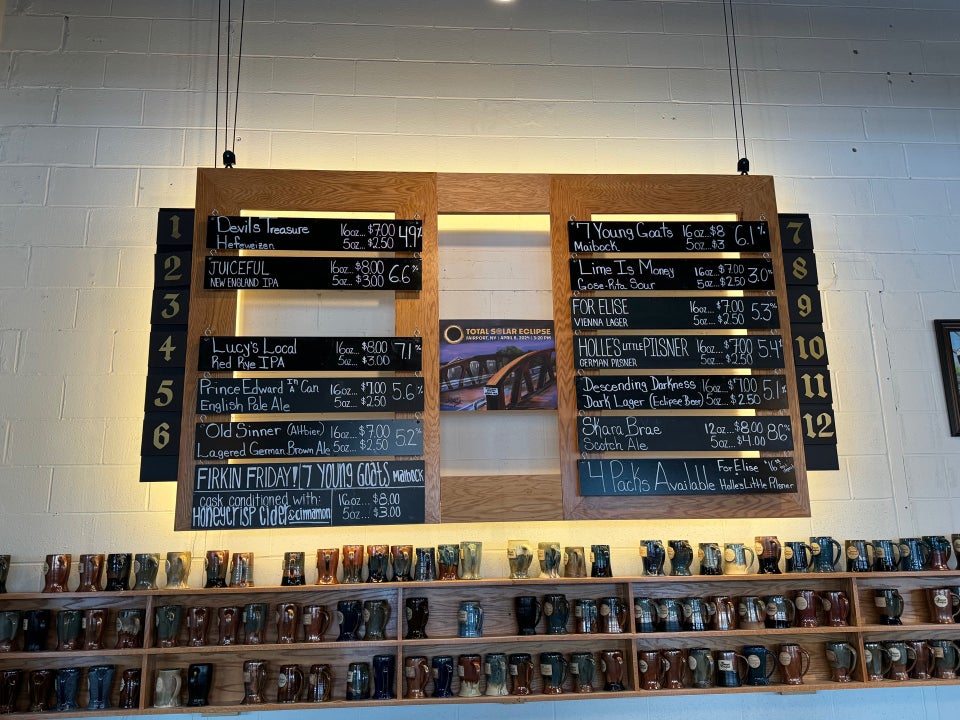 1
2
3
4
5
6
Devil's Treasure 16oz... $7.00 4.9%
Hefeweizen 5oz... $2.50
JUICEFUL 16oz... $8.00 6.6%
NEW ENGLAND IPA 5oz... $3.00
Lucy's Local 16oz... $8.00 7.1%
Red Rye IPA 5oz... $3.00
Prince Edward In A Can 16oz... $7.00 5.6%
English Pale Ale 5oz... $2.50
Old Sinner (Altbier) 16oz... $7.00 5.2%
Lagered German Brown Ale 5oz... $2.50
FIRKIN FRIDAY! 7 YOUNG GOATS MAIBOCK
cask conditioned with: 16oz... $8.00
Honeycrisp cider & cinnamon 5oz... $3.00
TOTAL SOLAR ECLIPSE
FAIRPORT, NY | APRIL 8, 2024 | 3:20 PM
7 Young Goats 16oz... $8 6.1%
Maibock 5oz... $3
Lime Is Money 16oz... $7.00 3.0%
Gose-Rita Sour 5oz... $2.50
FOR ELISE 16oz... $7.00 5.3%
VIENNA LAGER 5oz... $2.50
HOLLE'S LITTLE PILSNER 16oz... $7.00 5.4%
GERMAN PILSNER 5oz... $2.50
Descending Darkness 16oz... $7.00 5.1%
Dark Lager (Eclipse Beer) 5oz... $2.50
Skara Brae 12oz... $8.00 8.6%
Scotch Ale 5oz... $4.00
4 Packs Available For Elise $16
Holle's Little Pilsner
7
8
9
10
11
12